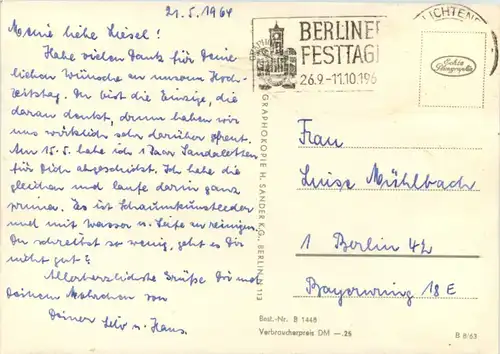 21.5.1964
Meine liebe Liesel!
Habe vielen Dank für Deine
lieben Wünsche an unserm Hoch-
zeitstag. Du bist die Einzige, die
daran denkt, drum haben wir
uns wirklich sehr darüber gefreut.
Am 15.5. habe ich 1 Paar Sandaletten
für Dich abgeschickt. Ich habe die
gleichen und laufe darin ganz
prima. Es ist Schaumkunstleder
und mit Wasser u. Seife zu reinigen.
Du schreibst so wenig, geht es Dir
nicht gut?
Allerherzlichste Grüße Dir und
Deinem von
Deiner u. Hans.
BERLINER
FESTTAGE
26.9.-11.10.196
LICHTENB
Echte
Photographie
GRAPHOKOPIE H. SANDER K.G., BERLIN N 113
Frau
Luise Mühlbach
1 Berlin 42
Bayernring 18 E
Best.-Nr. B 1448
Verbraucherpreis DM —.25
B 8/63